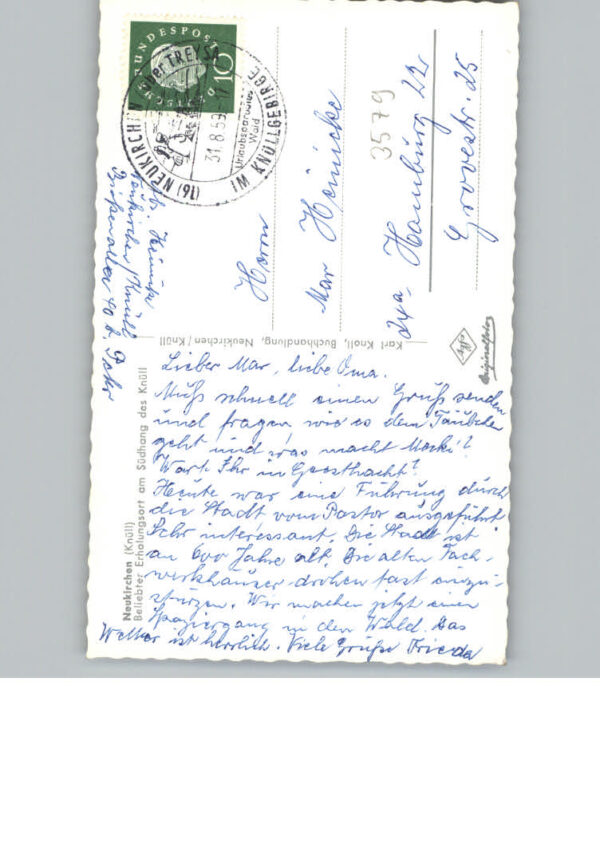 Lieber Max, liebe Oma.
Muß schnell einen Gruß senden
und fragen, wie es dem Täubchen
geht und was macht Mocki?
Wart Ihr in Geesthacht?
Heute war eine Führung durch
die Stadt vom Pastor ausgeführt.
Sehr interessant. Die Stadt ist
an 600 Jahre alt. Die alten Fach-
werkhäuser drohen fast einzu-
stürzen. Wir machen jetzt einen
Spaziergang in den Wald. Das
Wetter ist herrlich. Viele Grüße Frieda
Herrn
Max Heinicke
24a, Hamburg 22
Grovestr. 25
3579
Neukirchen/Knüll
Neukirchen (Knüll)
Beliebter Erholungsort am Südhang des Knüll
Karl Knoll, Buchhandlung, Neukirchen/Knüll
Agfa
Originalfoto
DEUTSCHE BUNDESPOST
10
(16) NEUKIRCHEN über TREYSA
31.8.59
Urlaubsparadies
Wald
IM KNÜLLGEBIRGE